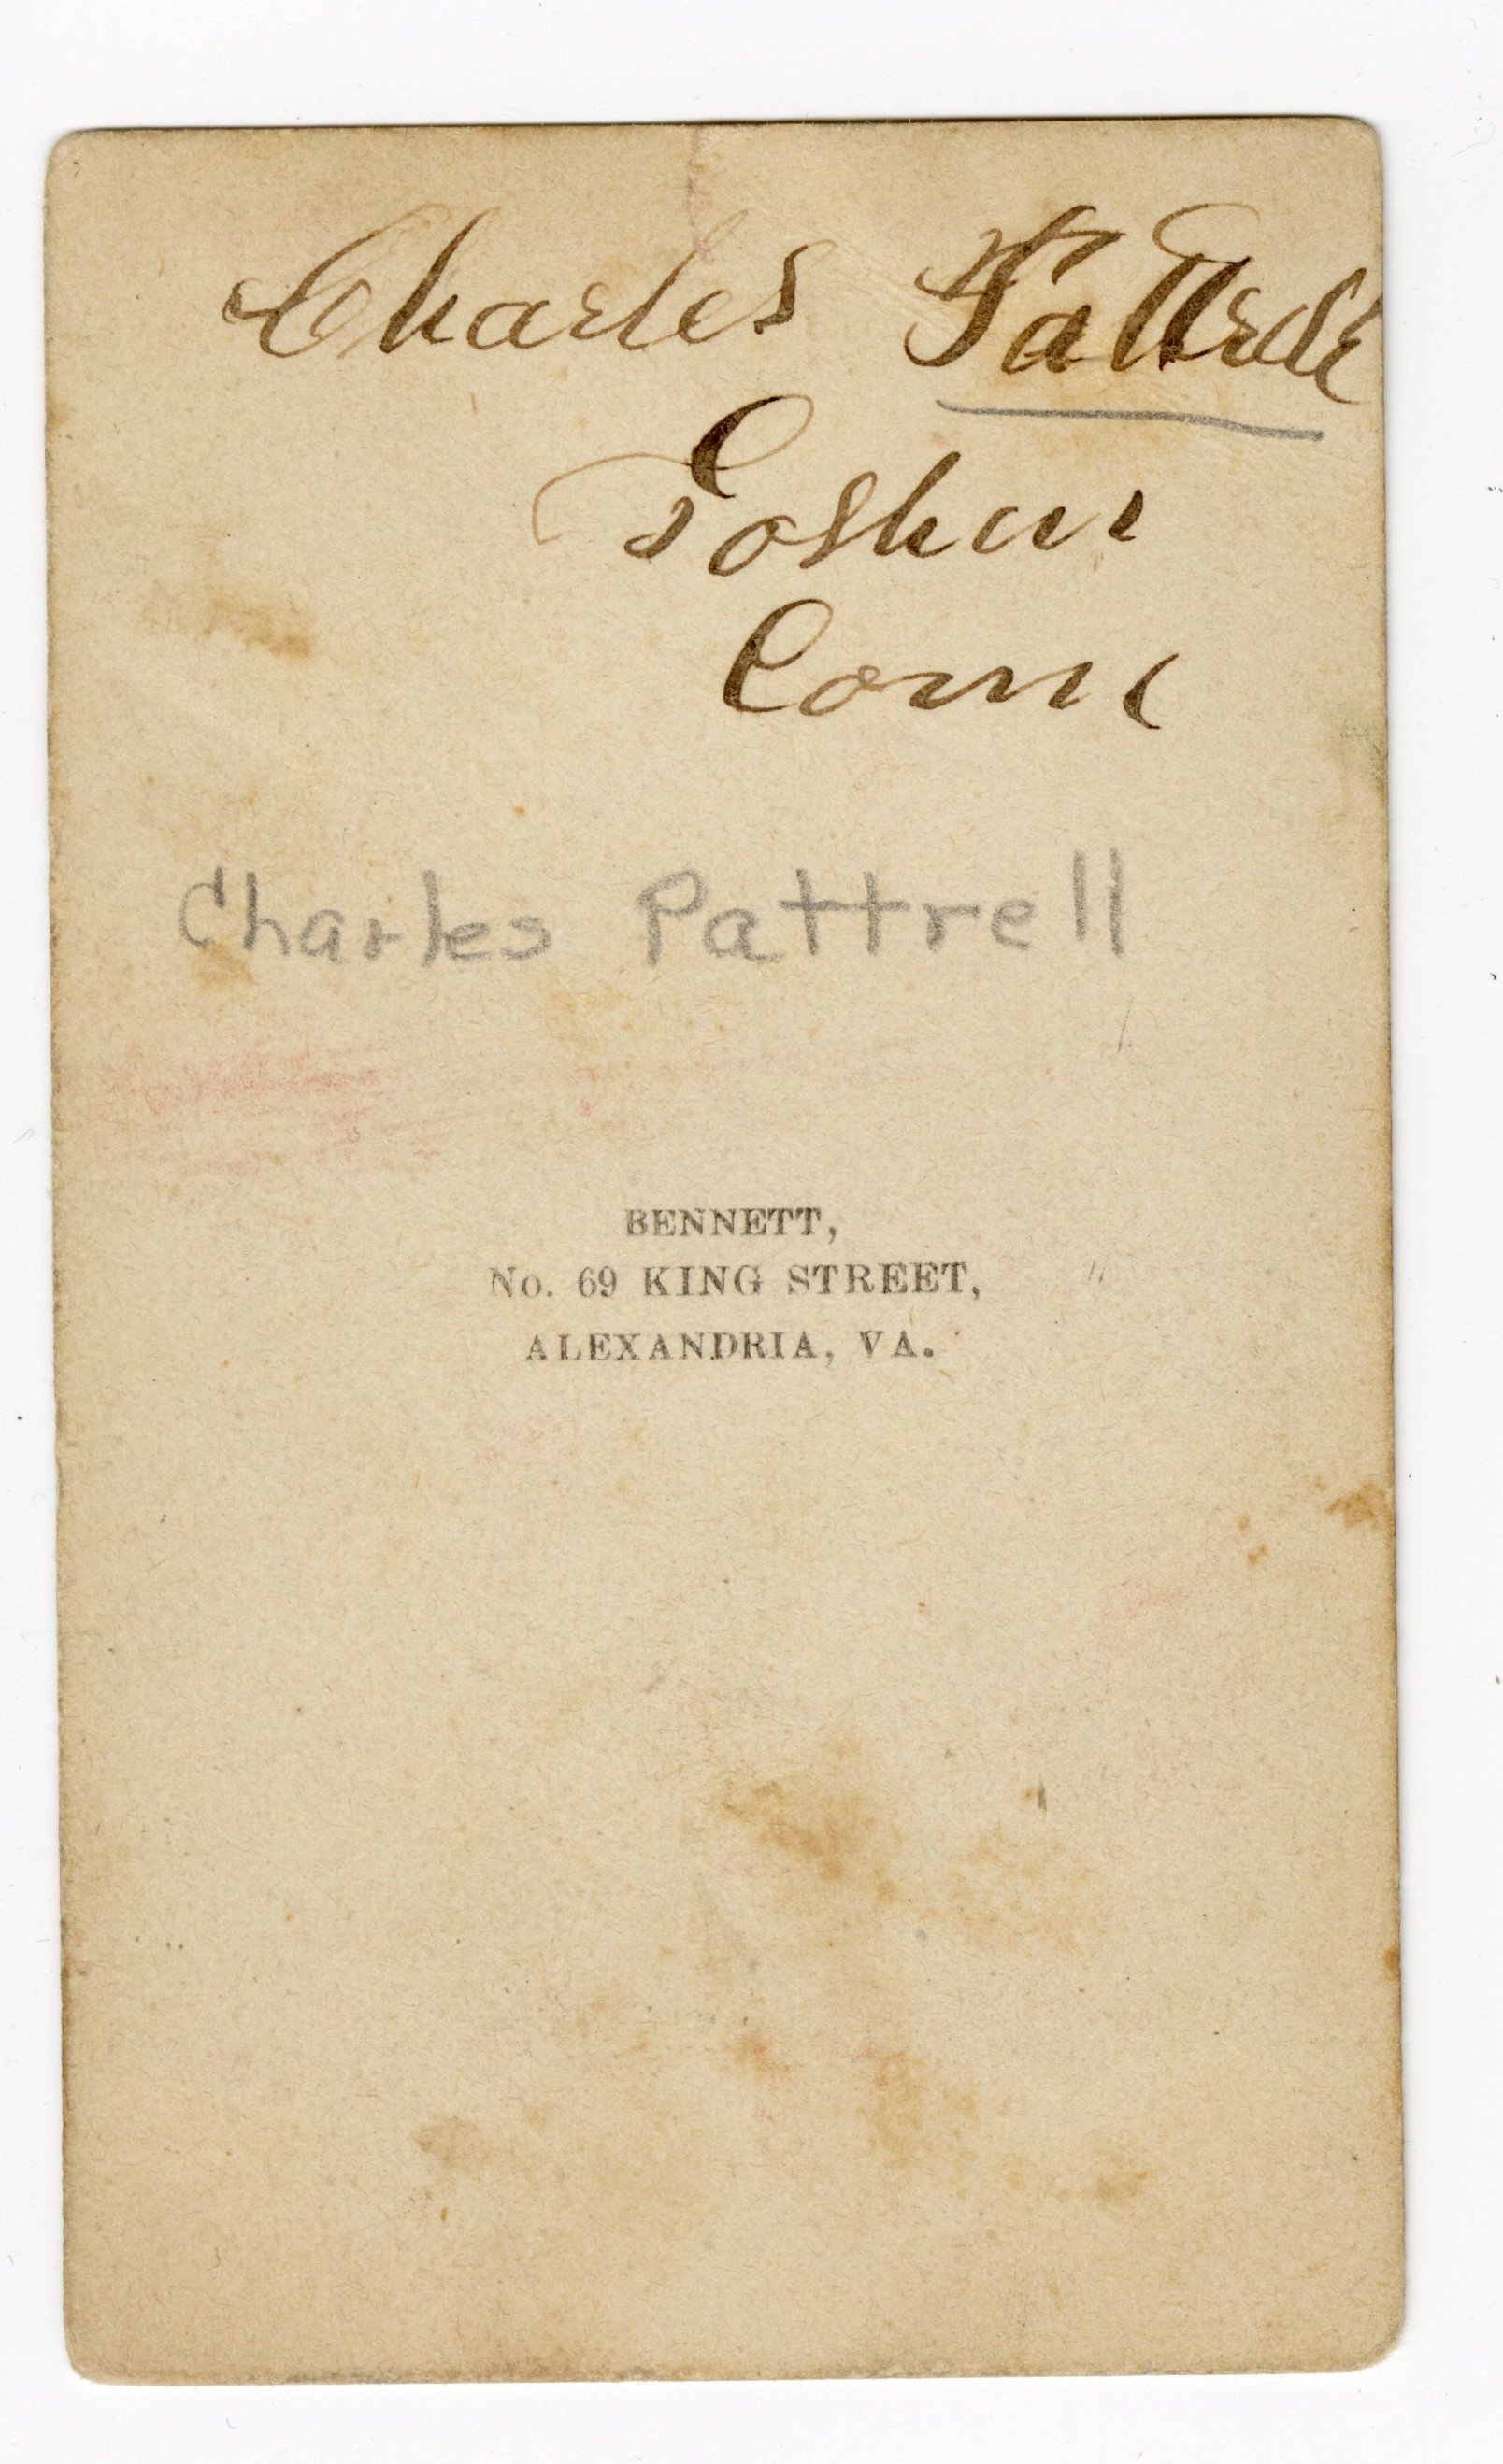 Charles Pattrell
Goshen
Conn
Charles Pattrell
BENNETT,
No. 69 KING STREET,
ALEXANDRIA, VA.